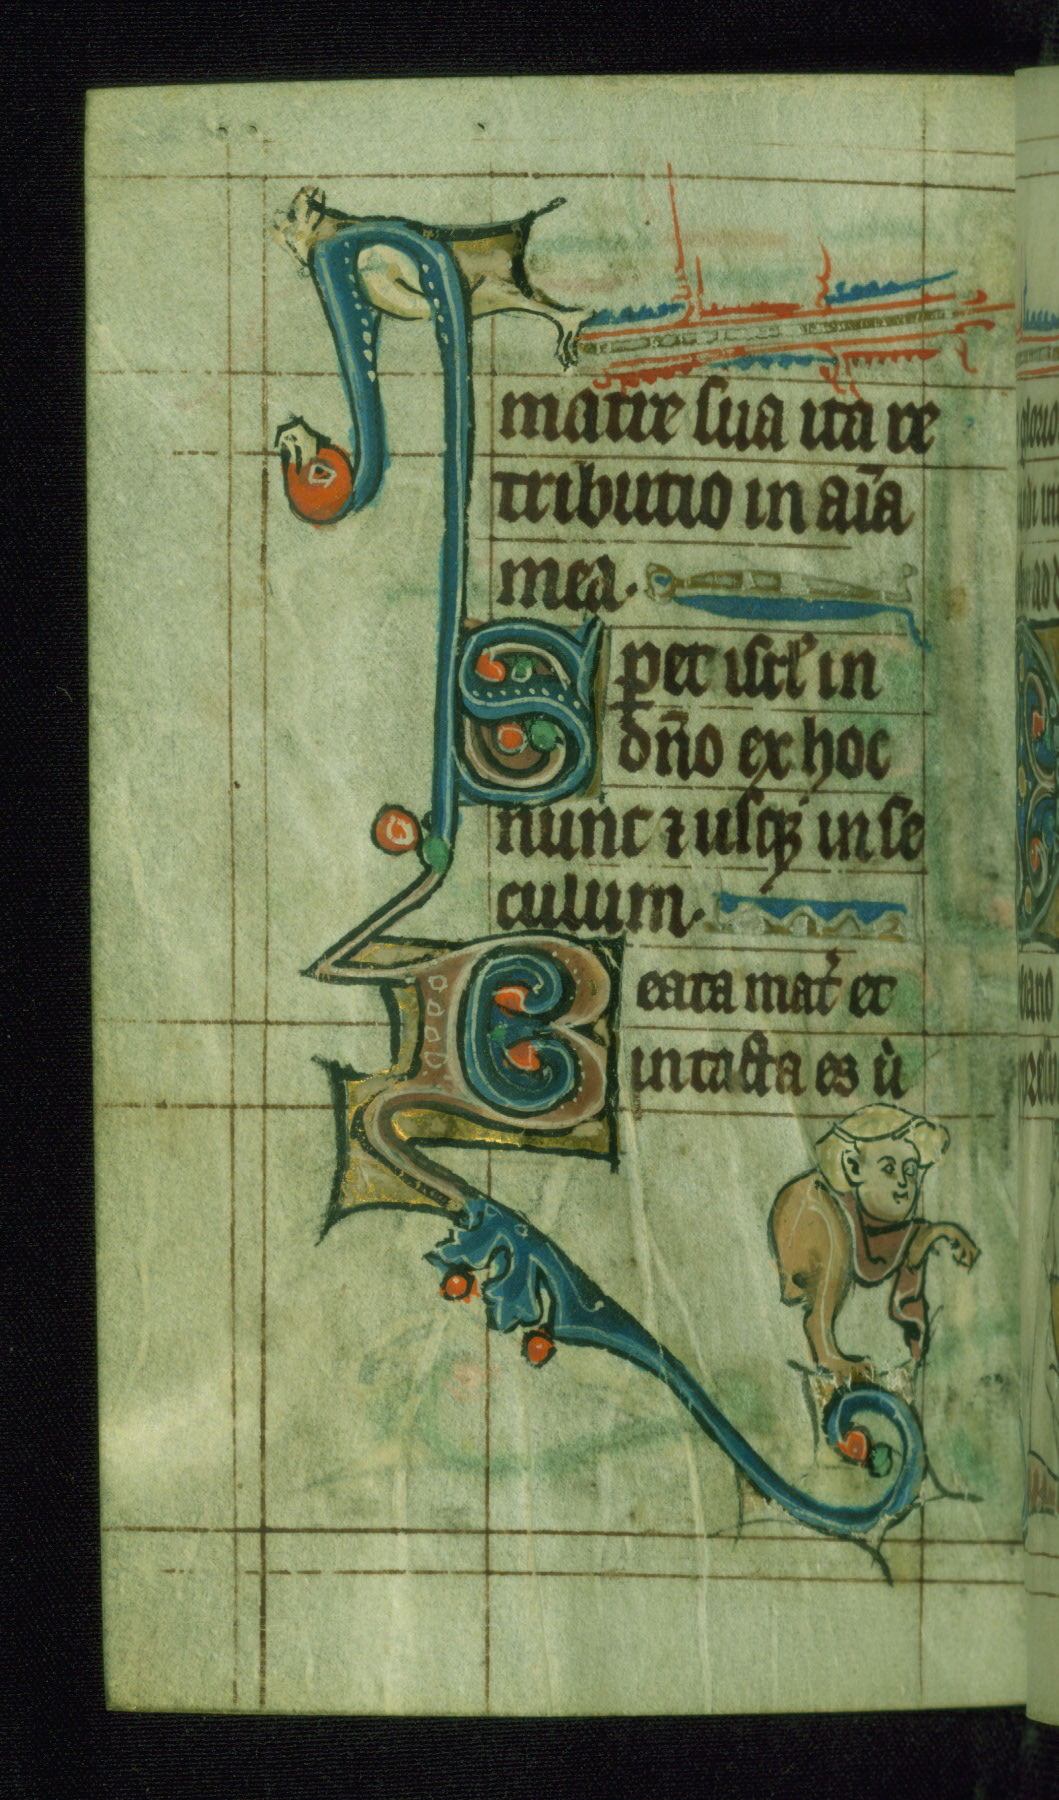 matre sua ita re
tributio in aīa
mea.
Spet isrl' in
dn̄o ex hoc
nunc ⁊ usqꝫ in se
culum.
Beata mat᷑ et
intacta es ů